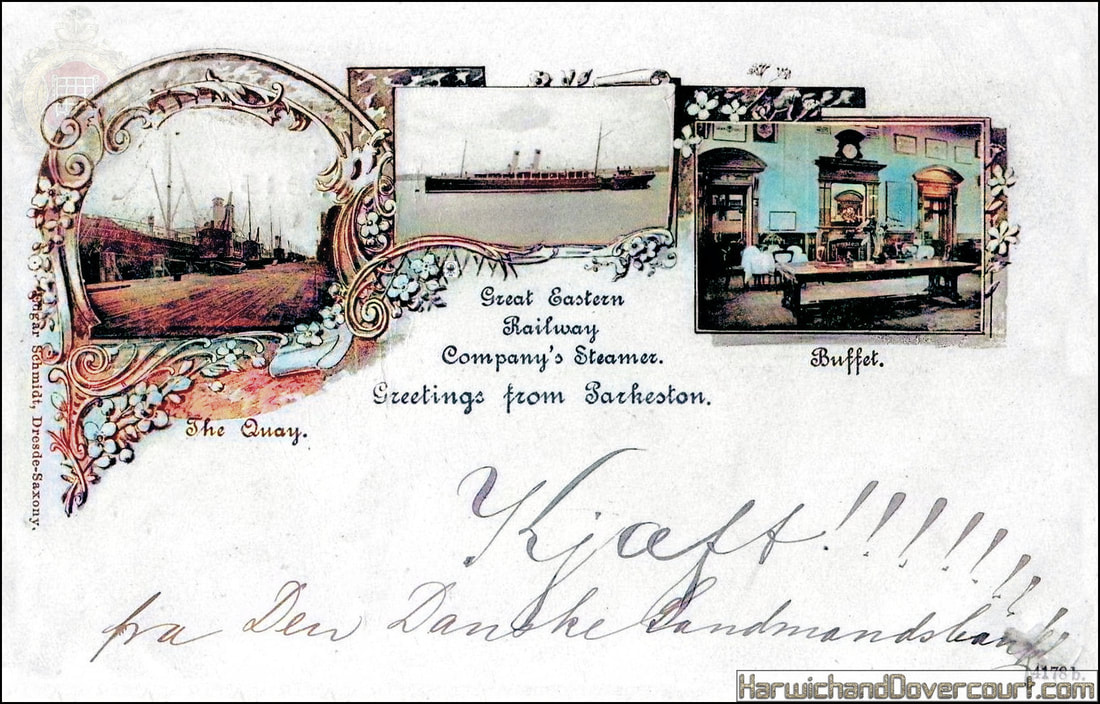 Great Eastern
Railway
Company's Steamer.
Greetings from Parkeston.
The Quay.
Buffet.
Edgar Schmidt, Dresde-Saxony.
Kjæft!!!!!!!
fra Den Danske Landmandsbank
4178 b.
HarwichandDovercourt.com